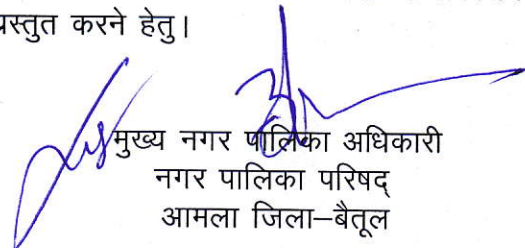 प्रस्तुत करने हेतु।
मुख्य नगर पालिका अधिकारी
नगर पालिका परिषद्
आमला जिला–बैतूल